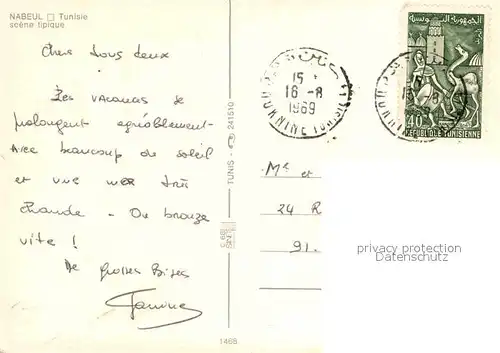 NABEUL □ Tunisie
scène tipique
Chers tous deux
Les vacances se
prolongent agréablement
Avec beaucoup de soleil
et une mer très
chaude - On bronze
vite !
De grosses Bises
TUNIS - 241510
1468
15
16-8
1969
الجمهورية التونسية
40
REPUBLIQUE TUNISIENNE
Mr et
24 R
91.
privacy protection
Datenschutz